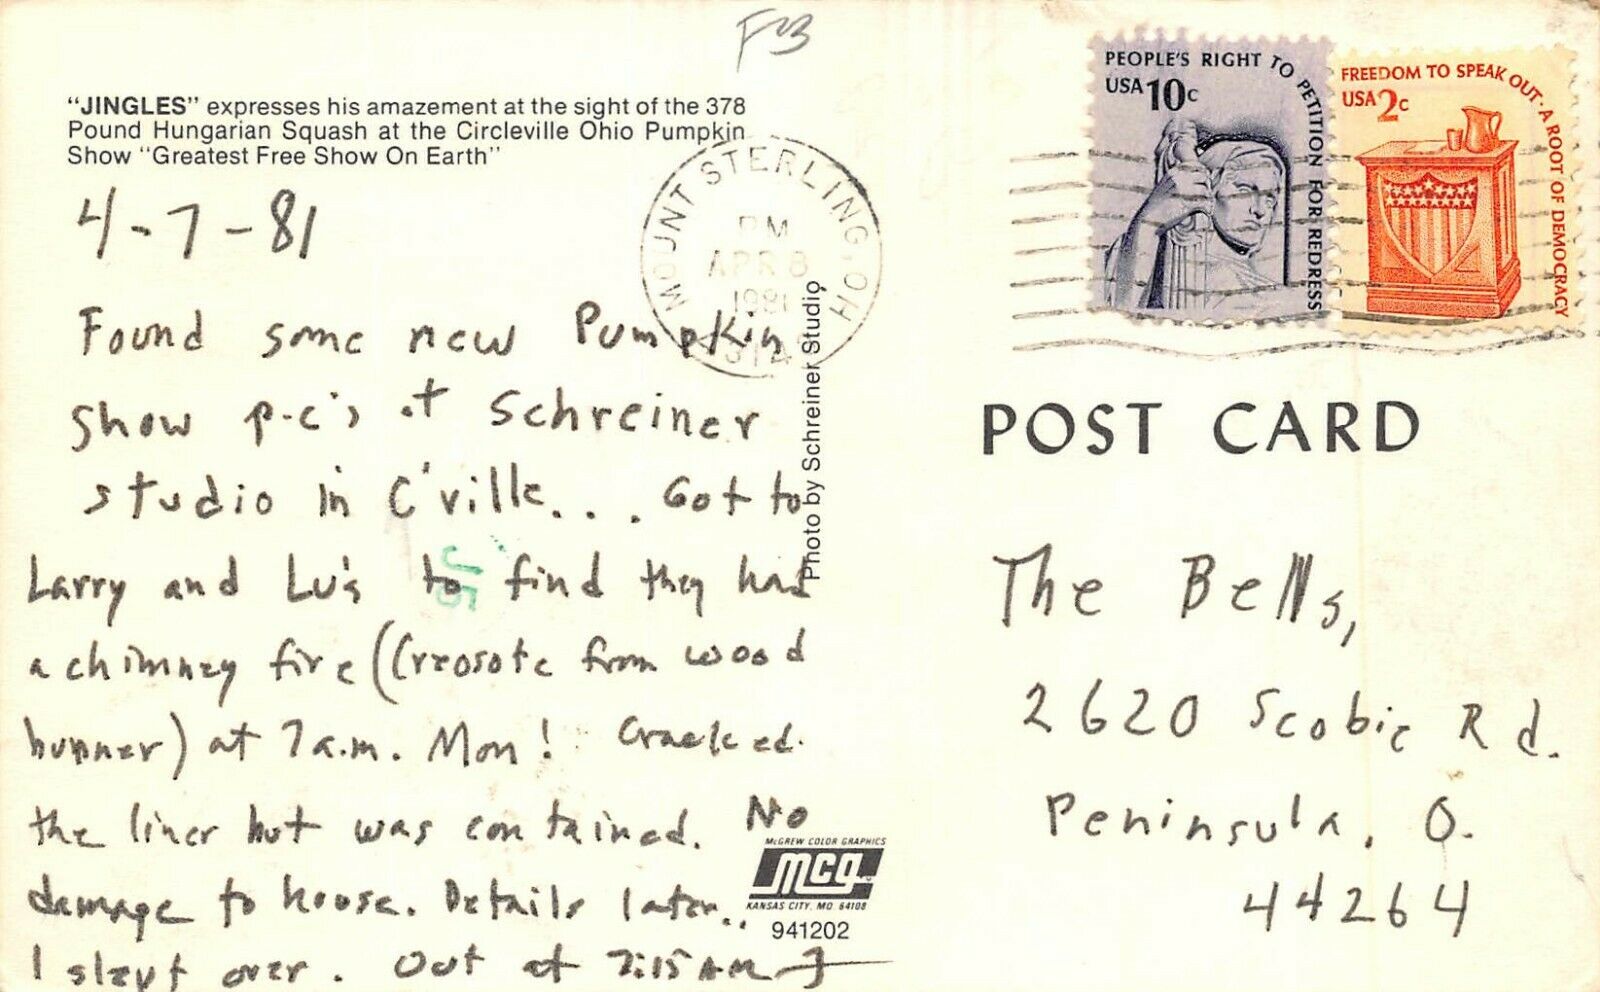 F23
"JINGLES" expresses his amazement at the sight of the 378
Pound Hungarian Squash at the Circleville Ohio Pumpkin
Show "Greatest Free Show On Earth"
4-7-81
Found some new Pumpkin
Show p-c's at Schreiner
studio in C'ville... Got to
Larry and Lu's to find they had
a chimney fire (Creosote from wood
burner) at 7 a.m. Mon! Cracked
the liner but was contained. No
damage to house. Details later..
I slept over. Out at 7:15 AM J
J5
MOUNT STERLING, OH
PM
APR 8
1981
Photo by Schreiner Studio
McGREW COLOR GRAPHICS
mcg
KANSAS CITY, MO 64108
941202
PEOPLE'S RIGHT TO PETITION FOR REDRESS
USA 10c
FREEDOM TO SPEAK OUT · A ROOT OF DEMOCRACY
USA 2c
POST CARD
The Bells,
2620 Scobie Rd.
Peninsula, O.
44264